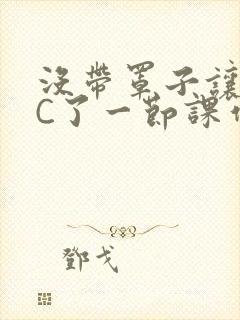 沒帶罩子讓
C了一節課作
鄧戈